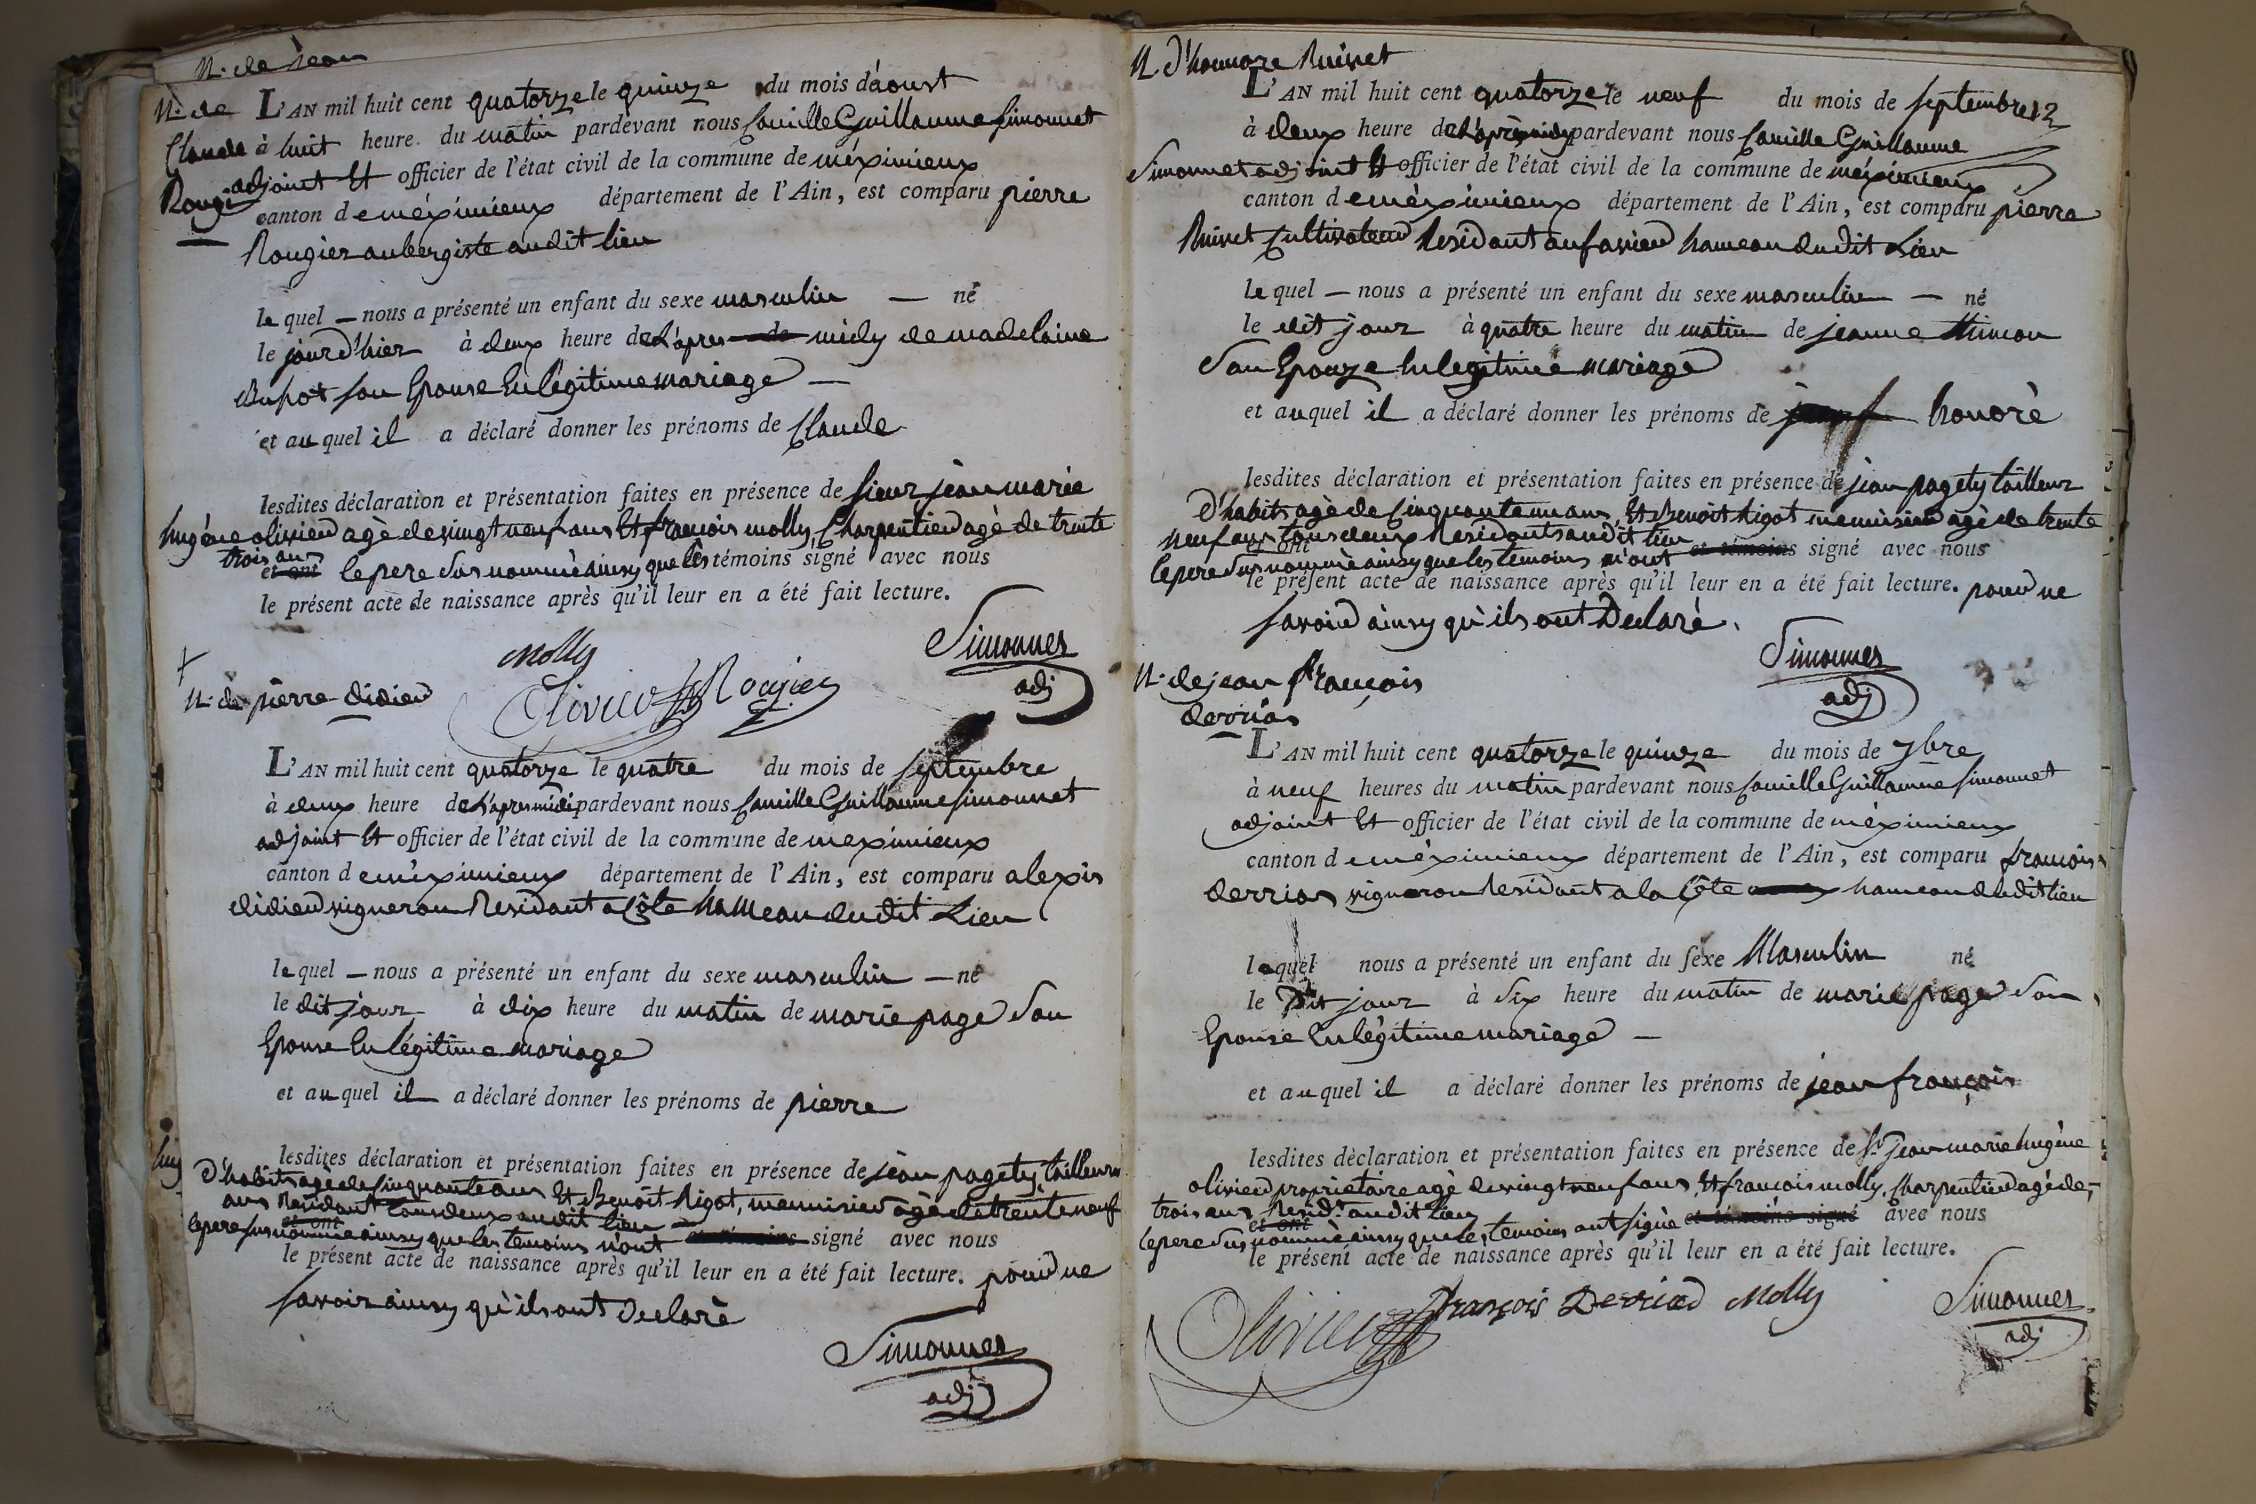 N. de Jean
N. de
Claude
Rougier
L'AN mil huit cent quatorze le quinze du mois d'áoust
à huit heure du matin pardevant nous Camille Guillaume Simonnet
adjoint Et officier de l'état civil de la commune de méximieux
canton de méximieux département de l'Ain, est comparu pierre
Rougier aubergiste audit lieu
lequel — nous a présenté un enfant du sexe masculin — né
le jour d'hier à deux heure de L'apres midy de madelaine
Bupot son Epouse En légitime mariage —
et auquel il a déclaré donner les prénoms de Claude
lesdites déclaration et présentation faites en présence de sieur jean marie
hugéne olivier agè de vingt neuf ans Et françois molly Charpentier agè de trente
trois ans
et ont le pere sus nommè ainsy que les témoins signé avec nous
le présent acte de naissance après qu'il leur en a été fait lecture.
Molly
Olivier Rougier
Simonnet
adj
N. de pierre didier
L'AN mil huit cent quatorze le quatre du mois de septembre
à deux heure de L'apres midi pardevant nous Camille Guillaume Simonnet
adjoint Et officier de l'état civil de la commune de meximieux
canton de méximieux département de l'Ain, est comparu alexis
didier vigneron Residant a Côte hameau du dit Lieu
lequel — nous a présenté un enfant du sexe masculin — né
le dit jour à dix heure du matin de marie page son
Epouse En légitime mariage
et auquel il a déclaré donner les prénoms de pierre
lesdites déclaration et présentation faites en présence de jean pagety tailleur
d'habits agè de cinquante ans Et Benoit Rigot, menuisier agè de trente neuf
ans Residant tous deux au dit lieu
et ont
le pere sus nommè ainsy que les temoins n'ont et témoins signé avec nous
le présent acte de naissance après qu'il leur en a été fait lecture. pour ne
savoir ainsy qu'ils ont declarè
Simonnet
adj
N. d'honnore Ruivet
L'AN mil huit cent quatorze le neuf du mois de septembre 12
à deux heure de L'après midy pardevant nous Camille Guillaume
Simonnet adjoint Et officier de l'état civil de la commune de méximieux
canton de méximieux département de l'Ain, est comparu pierre
Ruivet Cultivateur Residant au favier hameau du dit Lieu
lequel — nous a présenté un enfant du sexe masculin — né
le dit jour à quatre heure du matin de jeanne Thimon
son Epouze En legitime mariage
et auquel il a déclaré donner les prénoms de honorè
lesdites déclaration et présentation faites en présence de jean pagety tailleur
d'habits agè de cinquante un ans, Et Benoit Rigot menuisier agè de trente
neuf ans tous deux Residants audit lieu
et ont
le pere sus nommè ainsy que les temoins n'ont et témoins signé avec nous
le présent acte de naissance après qu'il leur en a été fait lecture. pour ne
savoir ainsy qu'ils ont Declarè.
Simonnet
adj
N. de jean françois
derrias
L'AN mil huit cent quatorze le quinze du mois de 7bre
à neuf heures du matin pardevant nous Camille Guillaume Simonnet
adjoint Et officier de l'état civil de la commune de méximieux
canton de méximieux département de l'Ain, est comparu françois
derrias vigneron Residant a la Côte hameau du dit lieu
lequel nous a présenté un enfant du sexe Masculin né
le Dit jour à six heure du matin de marie page son
Epouse En légitime mariage —
et auquel il a déclaré donner les prénoms de jean françois
lesdites déclaration et présentation faites en présence de Sr jean marie hugène
olivier proprietaire agè de vingt neuf ans, Et françois molly, Charpentier agè de
trois ans Residt audit lieu
et ont
le pere sus nommè ainsy que les temoins ont signè et témoins signé avec nous
le présent acte de naissance après qu'il leur en a été fait lecture.
Olivier françois Derriad Molly
Simonnet
adj